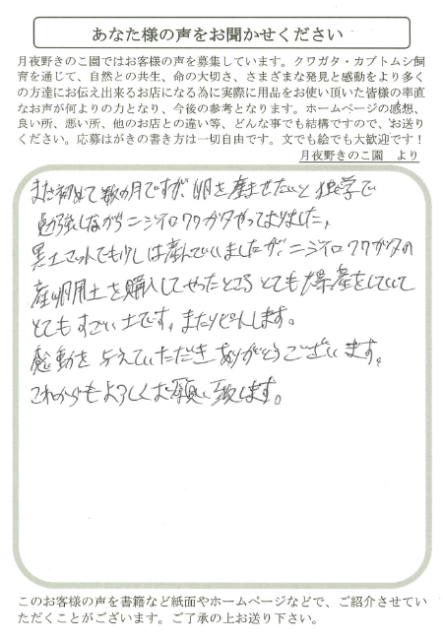 あなた様の声をお聞かせください
月夜野きのこ園ではお客様の声を募集しています。クワガタ・カブトムシ飼
育を通じて、自然との共生、命の大切さ、さまざまな発見と感動をより多く
の方達にお伝え出来るお店になる為に実際に用品をお使い頂いた皆様の率直
なお声が何よりの力となり、今後の参考となります。ホームページの感想、
良い所、悪い所、他のお店との違い等、どんな事でも結構ですので、お送り
ください。応募はがきの書き方は一切自由です。文でも絵でも大歓迎です！
月夜野きのこ園　より
まだ初めて数ヶ月ですが、卵を産ませたいと独学で
勉強しながらニジイロクワガタやってまりました。
黒土マットでも少しは産んでいましたが、ニジイロクワガタの
産卵用土を購入してやったところとても爆産をしていて
とてもすごい土です。またリピートします。
感動を与えていただきありがとうございます。
これからもよろしくお願い致します。
このお客様の声を書籍など紙面やホームページなどで、ご紹介させてい
ただくことがございます。ご了承の上お送り下さい。